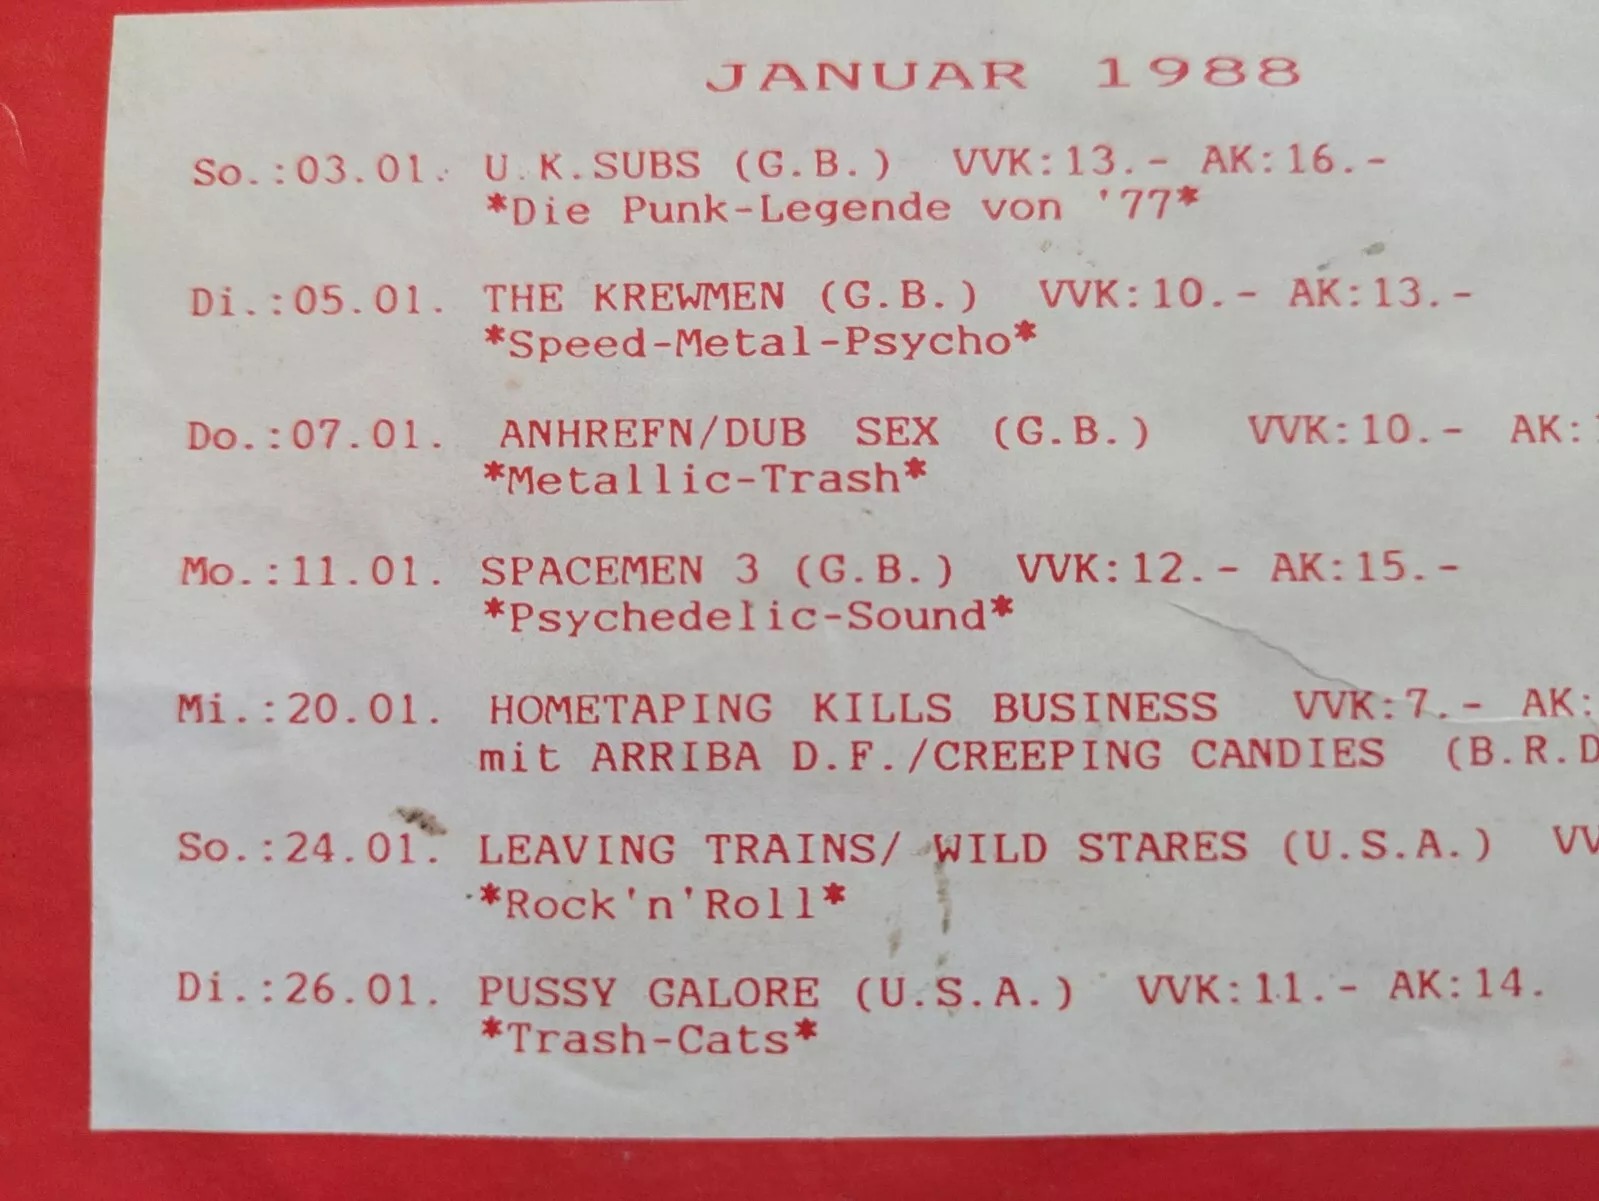 JANUAR 1988
So.:03.01. U.K.SUBS (G.B.) VVK:13.- AK:16.-
*Die Punk-Legende von '77*
Di.:05.01. THE KREWMEN (G.B.) VVK:10.- AK:13.-
*Speed-Metal-Psycho*
Do.:07.01. ANHREFN/DUB SEX (G.B.) VVK:10.- AK:
*Metallic-Trash*
Mo.:11.01. SPACEMEN 3 (G.B.) VVK:12.- AK:15.-
*Psychedelic-Sound*
Mi.:20.01. HOMETAPING KILLS BUSINESS VVK:7.- AK:
mit ARRIBA D.F./CREEPING CANDIES (B.R.D
So.:24.01. LEAVING TRAINS/ WILD STARES (U.S.A.)
*Rock'n'Roll*
Di.:26.01. PUSSY GALORE (U.S.A.) VVK:11.- AK:14.
*Trash-Cats*